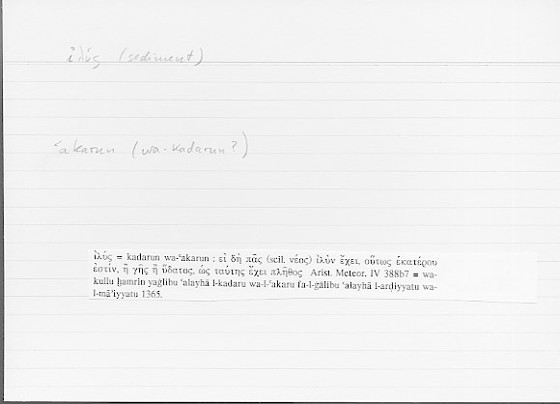 ἰλύς (sediment)
ʿakarun (wa-kadarun?)
ἰλύς = kadarun wa-ʿakarun : εἰ δὴ πᾶς (scil. νέος) ἰλὺν ἔχει, οὕτως ἑκατέρου
ἐστίν, ἢ γῆς ἢ ὕδατος, ὡς ταύτης ἔχει πλῆθος Arist. Meteor. IV 388b7 ≡ wa-
kullu ḫamrin yaġlibu ʿalayhā l-kadaru wa-l-ʿakaru fa-l-ġālibu ʿalayhā l-arḍiyyatu wa-
l-māʾiyyatu 1365.